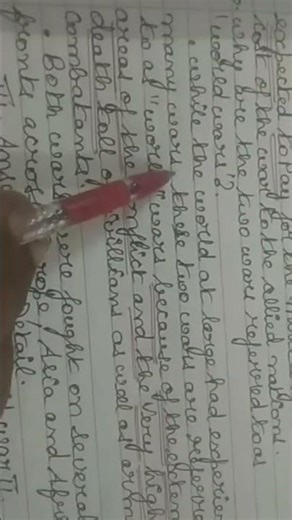 expected to pay for the
cost of the war to the allied nations.
why are the two wars referred to as
"world wars"?
. while the world at large had experien
many wars these two wars are referre
to as "world wars because of the exten
areas of the conflict and the very high
death toll of civilians as well as arm
combatants.
. Both wars were fought on several
fronts across Europe, Asia and Afri